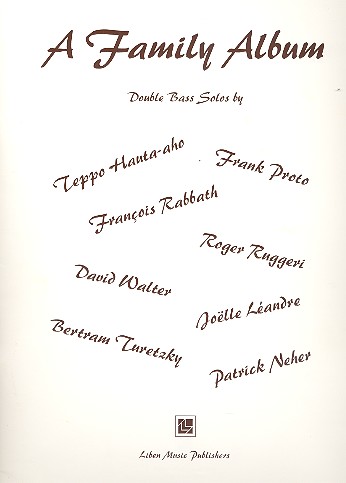 A Family Album
Double Bass Solos by
Teppo Hauta-aho
Frank Proto
François Rabbath
Roger Ruggeri
David Walter
Joëlle Léandre
Bertram Turetzky
Patrick Neher
Liben Music Publishers